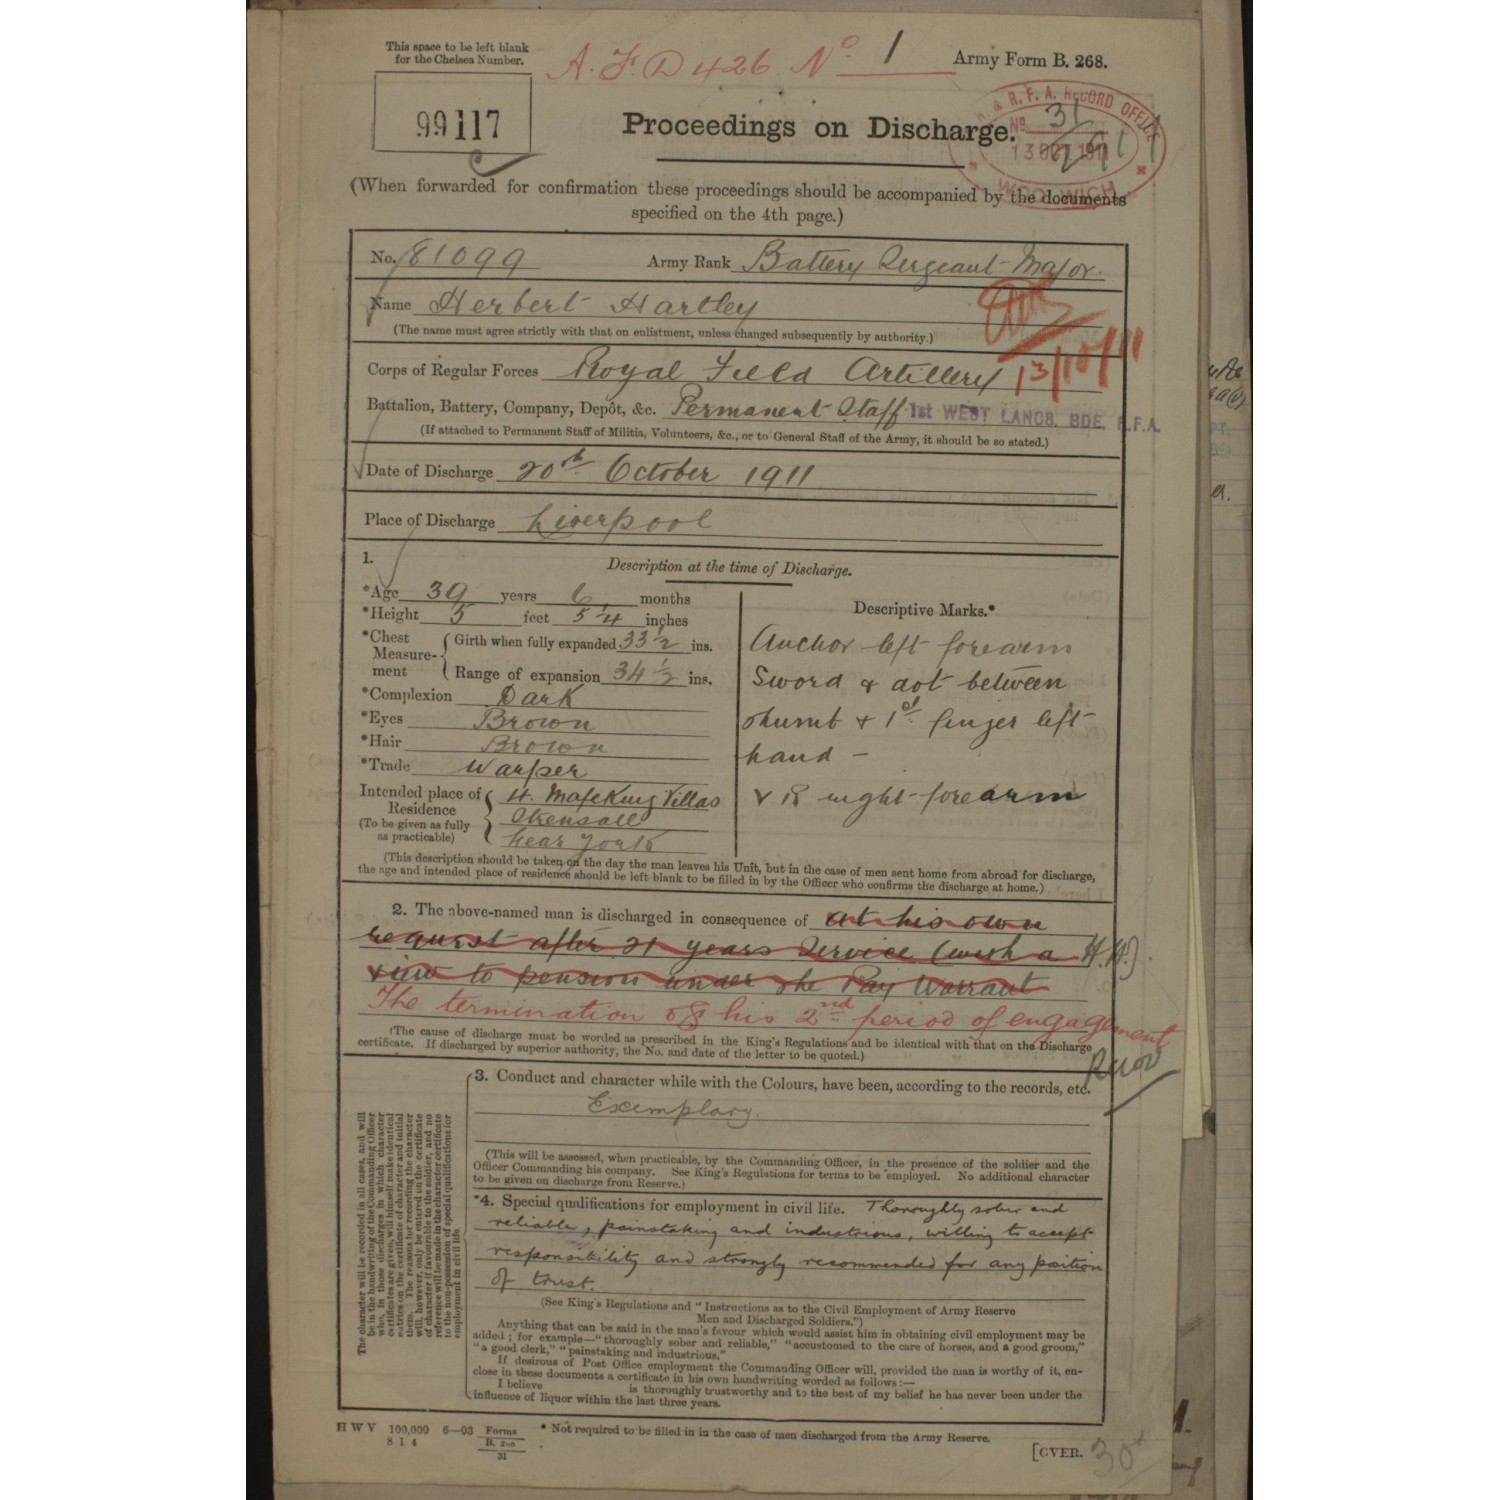 This space to be left blank
for the Chelsea Number.
A.F.D 426 No. 1
Army Form B. 268.
99117
Proceedings on Discharge.
R.F.A. RECORD OFFICE
No. 31
13 OCT 1911
WOOLWICH
(When forwarded for confirmation these proceedings should be accompanied by the documents
specified on the 4th page.)
No. 81099 Army Rank Battery Sergeant Major.
Name Herbert Hartley
(The name must agree strictly with that on enlistment, unless changed subsequently by authority.)
Corps of Regular Forces Royal Field Artillery
13/10/11
Battalion, Battery, Company, Depôt, &c. Permanent Staff 1st WEST LANCS. BDE. R.F.A.
(If attached to Permanent Staff of Militia, Volunteers, &c., or to General Staff of the Army, it should be so stated.)
Date of Discharge 20th October 1911
Place of Discharge Liverpool
1. Description at the time of Discharge.
*Age 39 years 6 months
*Height 5 feet 5 1/4 inches
*Chest Measure-ment Girth when fully expanded 33 1/2 ins.
Range of expansion 34 1/2 ins.
*Complexion Dark
*Eyes Brown
*Hair Brown
*Trade Warper
Intended place of Residence 4. Mafeking Villas
(To be given as fully as practicable) Strensall
Near York
Descriptive Marks.*
Anchor left forearm
Sword & dot between
thumb & 1st finger left
hand –
right forearm
(This description should be taken on the day the man leaves his Unit, but in the case of men sent home from abroad for discharge,
the age and intended place of residence should be left blank to be filled in by the Officer who confirms the discharge at home.)
2. The above-named man is discharged in consequence of at his own
request after 21 years Service (with a H.H.)
view to pension under the Pay Warrant
The termination of his 2nd period of engagement
(The cause of discharge must be worded as prescribed in the King's Regulations and be identical with that on the Discharge
certificate. If discharged by superior authority, the No. and date of the letter to be quoted.)
The character will be recorded in all cases, and will
be in the handwriting of the Commanding Officer
who, in those discharges in which character
certificates are given, will himself make identical
entries on the certificate of character and initial
them. The reasons for recording the character
will, however, only be entered on the certificate
of character if favourable to the soldier, and no
reference will be made in the character certificate
to the non-possession of special qualifications for
employment in civil life.
3. Conduct and character while with the Colours, have been, according to the records, etc.
Exemplary.
(This will be assessed, when practicable, by the Commanding Officer, in the presence of the soldier and the
Officer Commanding his company. See King's Regulations for terms to be employed. No additional character
to be given on discharge from Reserve.)
*4. Special qualifications for employment in civil life. Thoroughly sober and
reliable, painstaking and industrious, willing to accept
responsibility and strongly recommended for any position
of trust.
(See King's Regulations and "Instructions as to the Civil Employment of Army Reserve
Men and Discharged Soldiers.")
Anything that can be said in the man's favour which would assist him in obtaining civil employment may be
added; for example—"thoroughly sober and reliable," "accustomed to the care of horses, and a good groom,"
"a good clerk," "painstaking and industrious."
If desirous of Post Office employment the Commanding Officer will, provided the man is worthy of it, en-
close in these documents a certificate in his own handwriting worded as follows:—
I believe is thoroughly trustworthy and to the best of my belief he has never been under the
influence of liquor within the last three years.
H W V 100,000 6—03 Forms
8 1 4 B. 268
31
* Not required to be filled in in the case of men discharged from the Army Reserve.
[OVER.
30